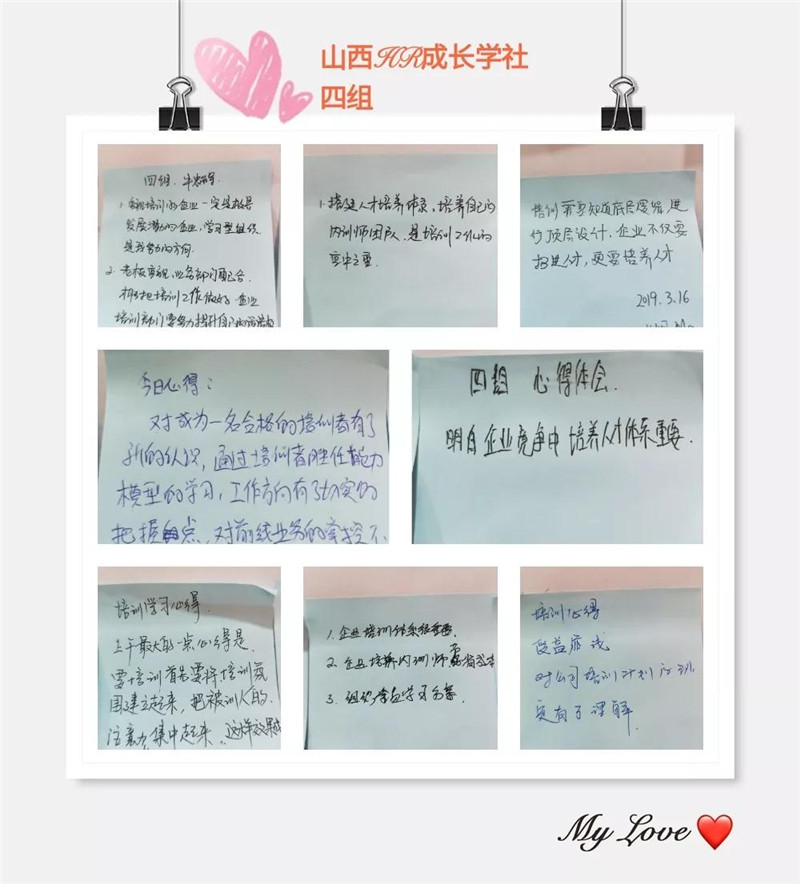 山西HR成长学社
四组
四组.
1.重视培训的企业一定是极具
发展潜力的企业,学习型组织
是我努力的方向.
2.老板重视,业务部门配合.
才能把培训工作做好.企业
培训部门要努力提升自己的
1.搭建人才培养体系,培养自己的
内训师团队,是培训工作的
重中之重.
培训需要知道底层逻辑,进
行顶层设计.企业不仅要
招进人才,更要培养人才
2019.3.16
今日心得:
对成为一名合格的培训者有了
新的认识,通过培训者胜任能力
模型的学习,工作方向有了切实的
把握点,对前线业务的掌控不
四组 心得体会.
明白企业竞争中培养人才体系重要.
培训学习心得.
上午最大的一点心得是.
要培训首先要将培训氛
围建立起来,把被训人的.
注意力集中起来.这样效果
1.企业培训体系很重要.
2.企业培养内训师
3.组织学员学习方案.
培训心得
受益匪浅
对公司培训计划
更有了理解.
My Love